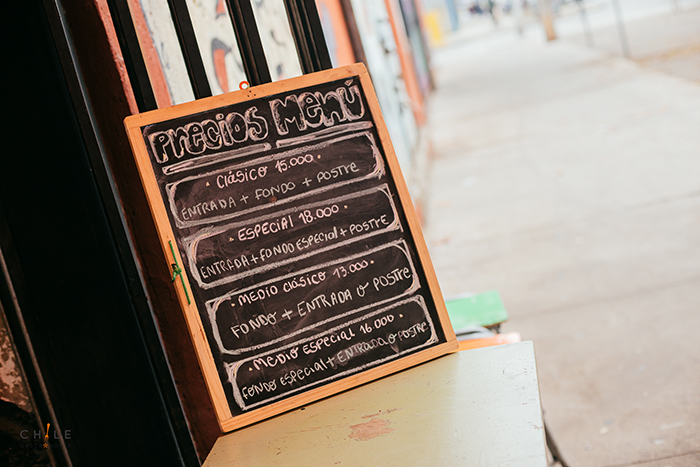 Precios Menú
· Clásico 15.000 ·
Entrada + Fondo + Postre
· Especial 18.000 ·
Entrada + Fondo Especial + Postre
· Medio Clásico 13.000 ·
Fondo + Entrada o Postre
· Medio Especial 16.000 ·
Fondo Especial + Entrada o Postre
CHILE